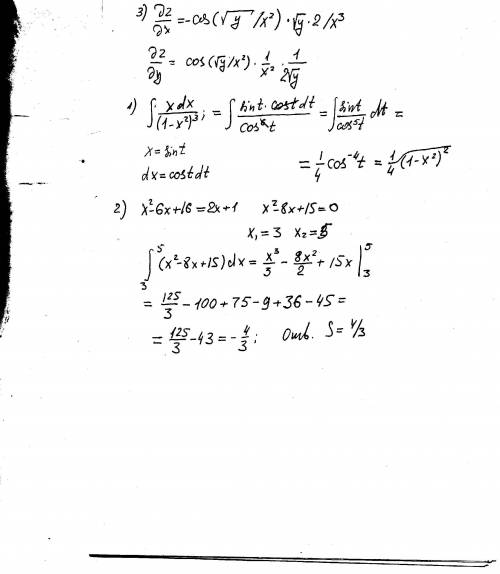 3) ∂z/∂x = -cos(√y /x²)·√y·2/x³
∂z/∂y = cos(√y/x²)·1/x²·1/2√y
1) ∫ xdx/(1-x²)³; = ∫ sint·costdt/cos⁶t = ∫ sint/cos⁵t dt =
x = sint
dx = costdt
= 1/4 cos⁻⁴t = 1/4 (1-x²)²
2) x²-6x+16=2x+1 x²-8x+15=0
x₁=3 x₂=5
∫₃⁵ (x²-8x+15)dx = x³/3 - 8x²/2 + 15x |₃⁵
= 125/3 - 100 + 75 - 9 + 36 - 45 =
= 125/3 - 43 = - 4/3; Отв. S = 4/3